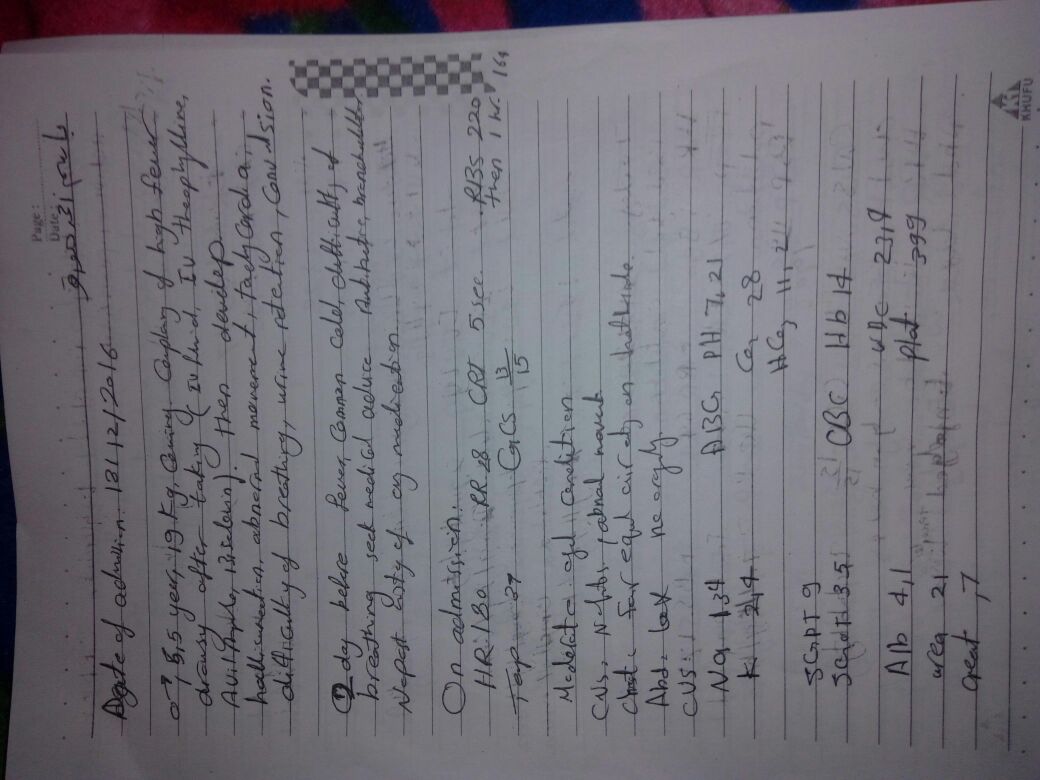 Page:
Date:
Date of admission: 13/12/2016
♂ 5,5 year, 19 Kg, Coming Complaing of high fever
drowsy after taking (IV fluid, IV theophylline,
) then develop
hallucination, abnormal movement, tachycardia,
difficulty of breathing, urine retention, Convulsion.
① day before fever, Common cold, difficulty of
breathing seek medical advice Antibiotic, bronchodilator
No past history of any medication
On admission
HR: 180 RR 28 CRT 5 sec. RBS 220
then 1 hr. 169
Temp 37 GCS 13/15
Moderate gl condition
CNS, abnal movmt
Chest: Fair equal air entry on both side
Abd. lax no orgaly
CVS:
Na 134 ABG PH 7,21
K 2,4 Co2 28
HCo3 11,2
SGPT 9
SGOT 35 CBC Hb 14
Alb 4,1 WBC 23,8
urea 21 plat 399
Creat ,7
KHUFU